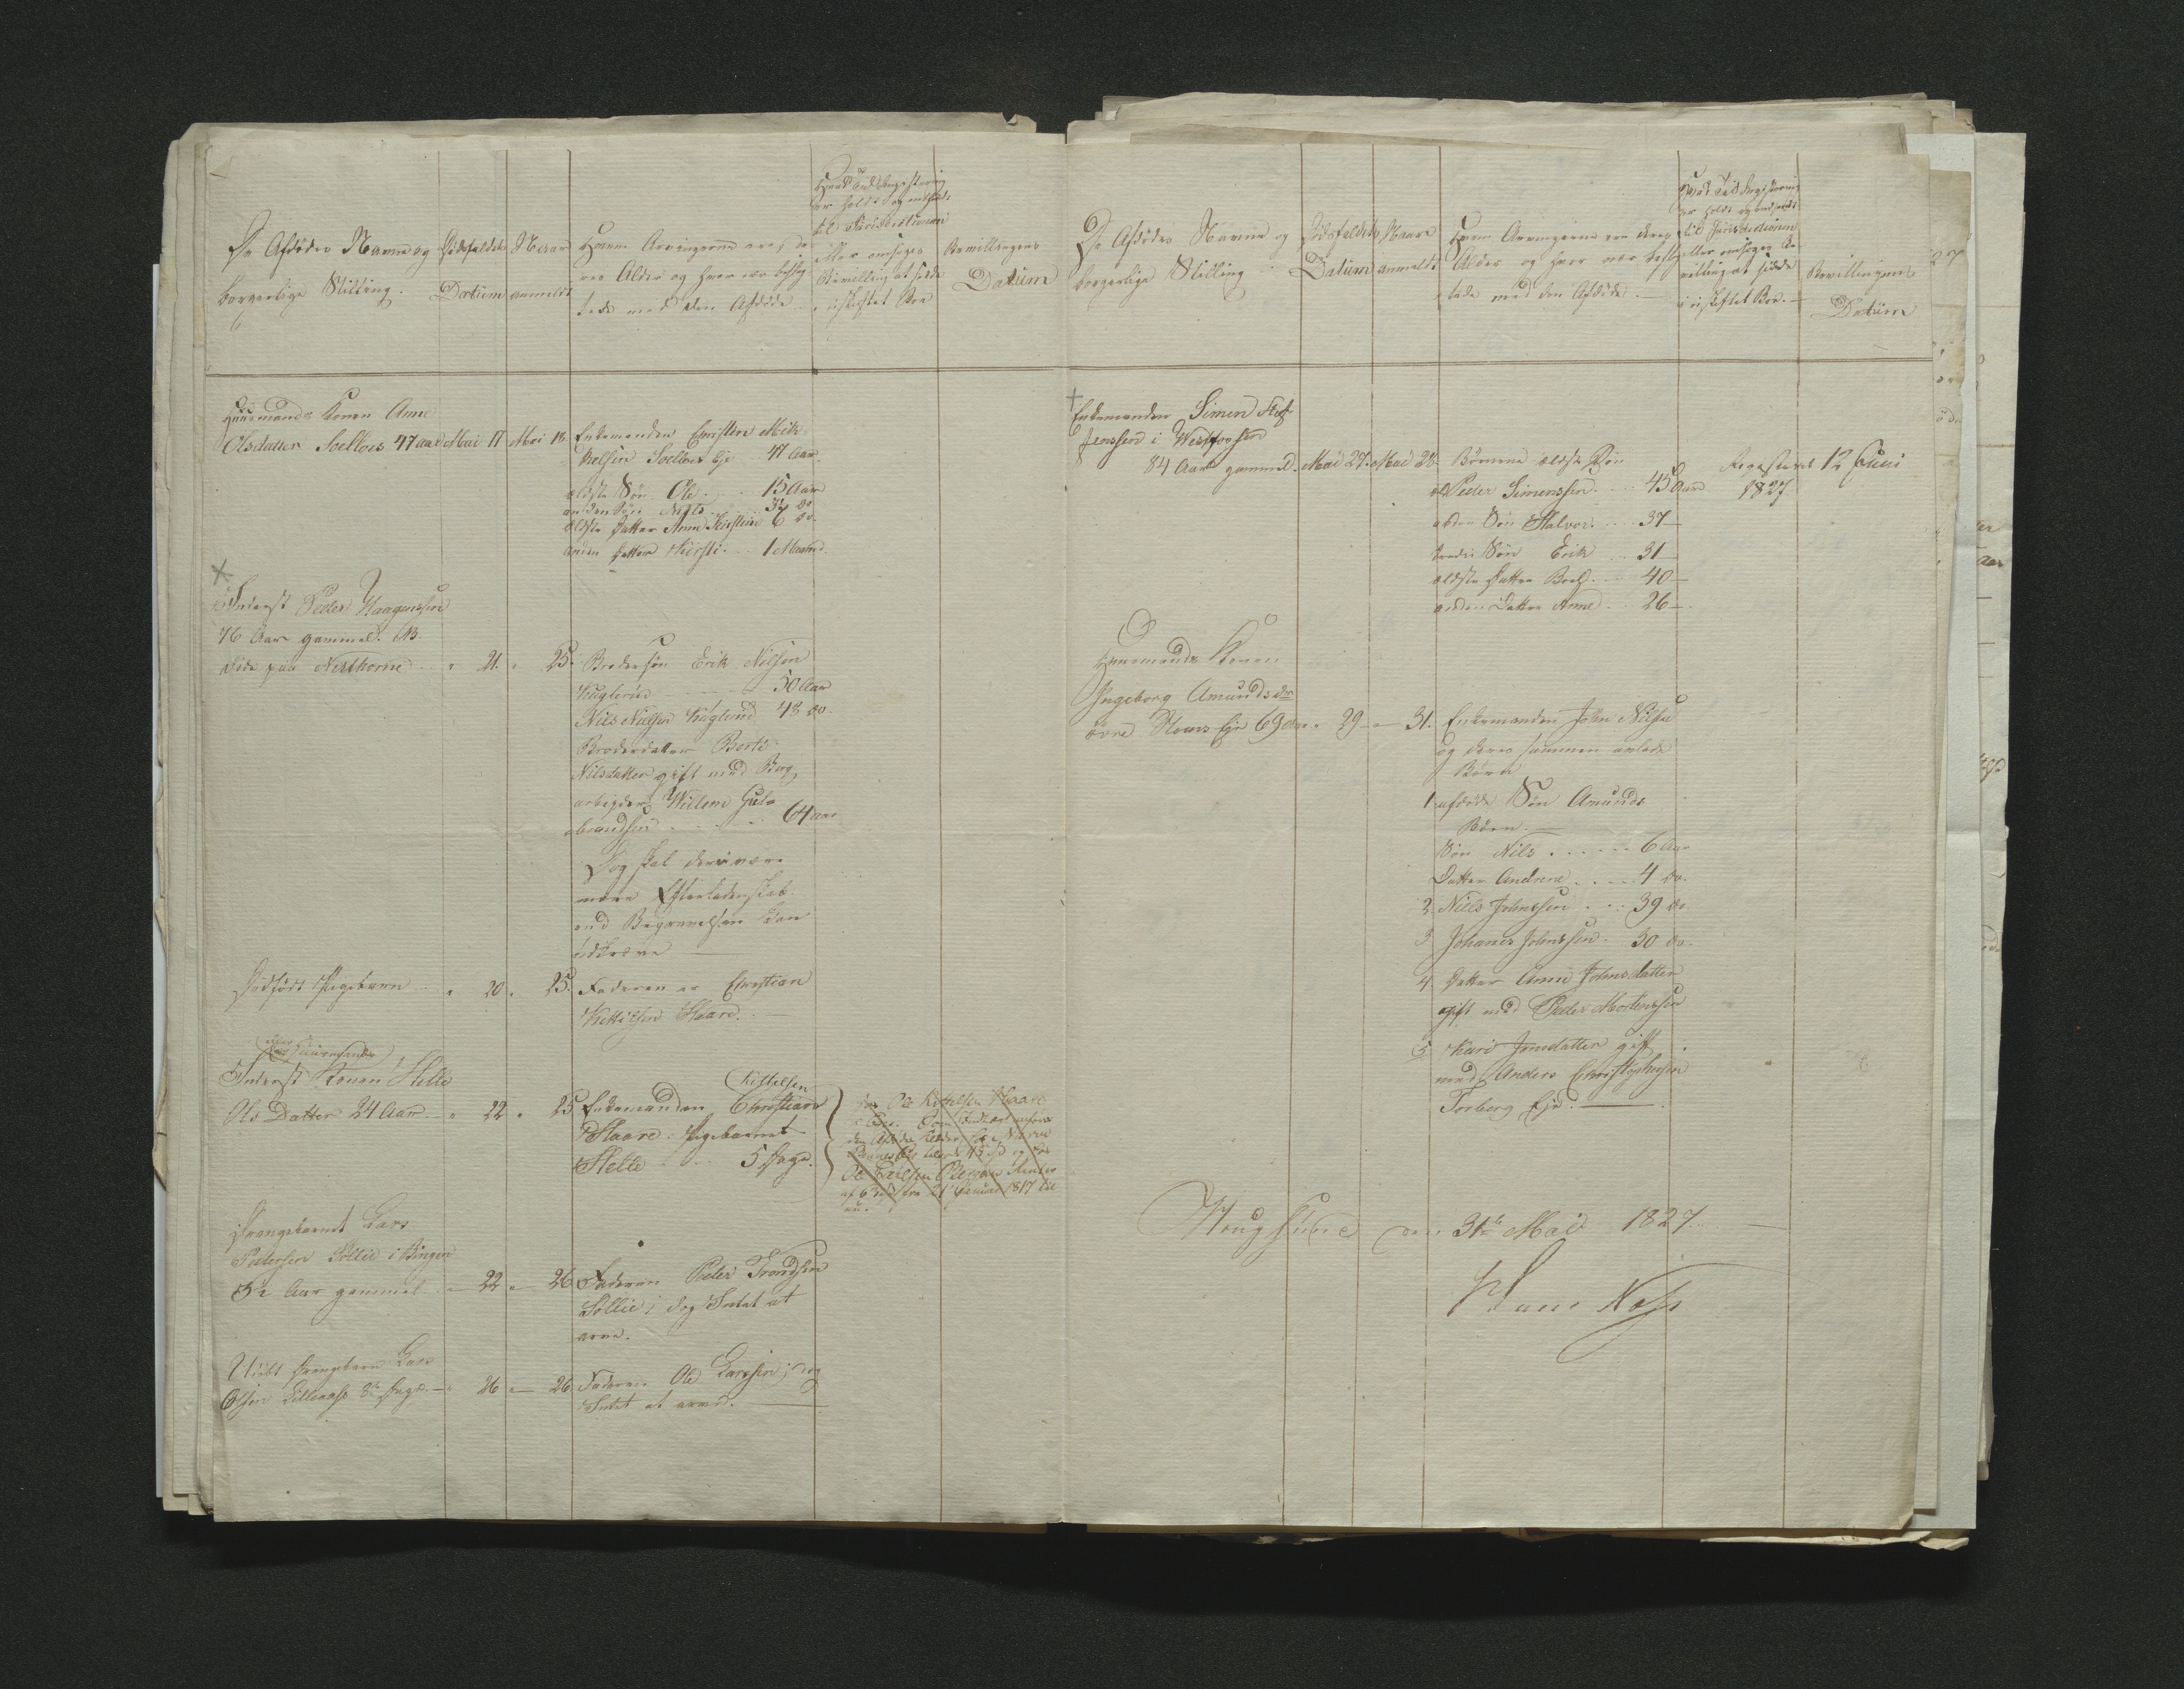 De Afdödes Navne og
borgerlige Stilling.
Dödsfaldets
Datum
Naar
anmeldt
Hvem Arvingerne ere, de-
res Alder og hvor nær beslæg-
tede med den Afdöde
Hvad Tid Registrering
er holdt og indsendt
til Jurisdictionen
eller ansöges
Bevilling at sidde
i uskiftet Boe
Bevillingens
Datum
Huusmands Konen Anne
Olsdatter Soelloes 47 aar Mai 17 Mai 18
Enkemanden Christen Mik-
kelsen Soelloes Eje 47 Aar.
ældste Sön Ole 15 Aar
anden Sön Niels 3½ do
ældste Datter Anne Kirstine 6 do.
anden Datter Kirsti 1 Maaned.
Inderst Peder Haagenssen
76 Aar gammel. NB.
döde paa Nesthorne " 21. " 25.
Brodersön Erik Nilsen
Kuglerud 50 Aar
Nils Nielsen Kuglerud 48 do.
Broderdatter Berte
Nilsdatter gift med Berg
arbeyder Willem Gul-
brandsen 64 aar
Dog skal der være
mere Efterladenskab
end Begravelsen kan
udkræve
Dödfödt Pigebarn " 20 " 25.
Faderen er Christian
Kittilsen Haare.
Huusmands
Inderst Konen Helle
Ols Datter 24 Aar " 22 " 25
Kittelsen
Enkemanden Christian
Haare. Pigebarnet
Helle 5 Dage.
Ole Kittelsen Haare
af 6 fra 21 Januar 1817 til
Drengebarnet Lars
Pedersen Sollie i Bingen
3½ Aar gammel " 22 " 26
Faderen Peder Trondsen
Sollie; dog Intet at
arve.
Udöbt Drengebarn Lars
Olsen Lilleaas 8te Dage. " 26 " 26
Faderen Ole Larssen; dog
Intet at arve.
De Afdödes Navne og
borgerlige Stilling
Dödsfaldets
Datum
Naar
anmeldt
Hvem Arvingerne ere deres
Alder og hvor nær beslæg-
tede med den Afdöde.
Hvad Tid Registrering
er holdt og indsendt
til Jurisdictionen
eller ansöges Be-
villing at sidde
i uskiftet Boe.
Bevillingens
Datum
Enkemanden Simen
Jenssen i
84 Aar gammel. Mai 27. Mai 28.
Börnene ældste Sön
Peder Simenssen 45 Aar
anden Sön Halvor 37
tredie Sön Erik 31
ældste Datter Boel 40
anden Datter Anne 26
Registeret 12 Juni
1827
Huusmands Konen
Ingeborg Amundsdr
övre Hoens Eje 69 Aar " 29 " 31.
Enkemanden John Nilsen
og deres sammen avlede
Börn
1 afdöde Sön Amunds
Börn.
Sön Nils 6 Aar
Datter Andrine 4 do.
2. Niels Johnssen 39 do.
3 Johanes Johnssen. 30 do.
4 Datter Anne Johnsdatter
gift med Peder Mortenssen
5 Kari Jonsdatter gift
med Anders Christophersen
Torberg Eje.
Hougsund den 31te Mai 1827.
Hans Næss